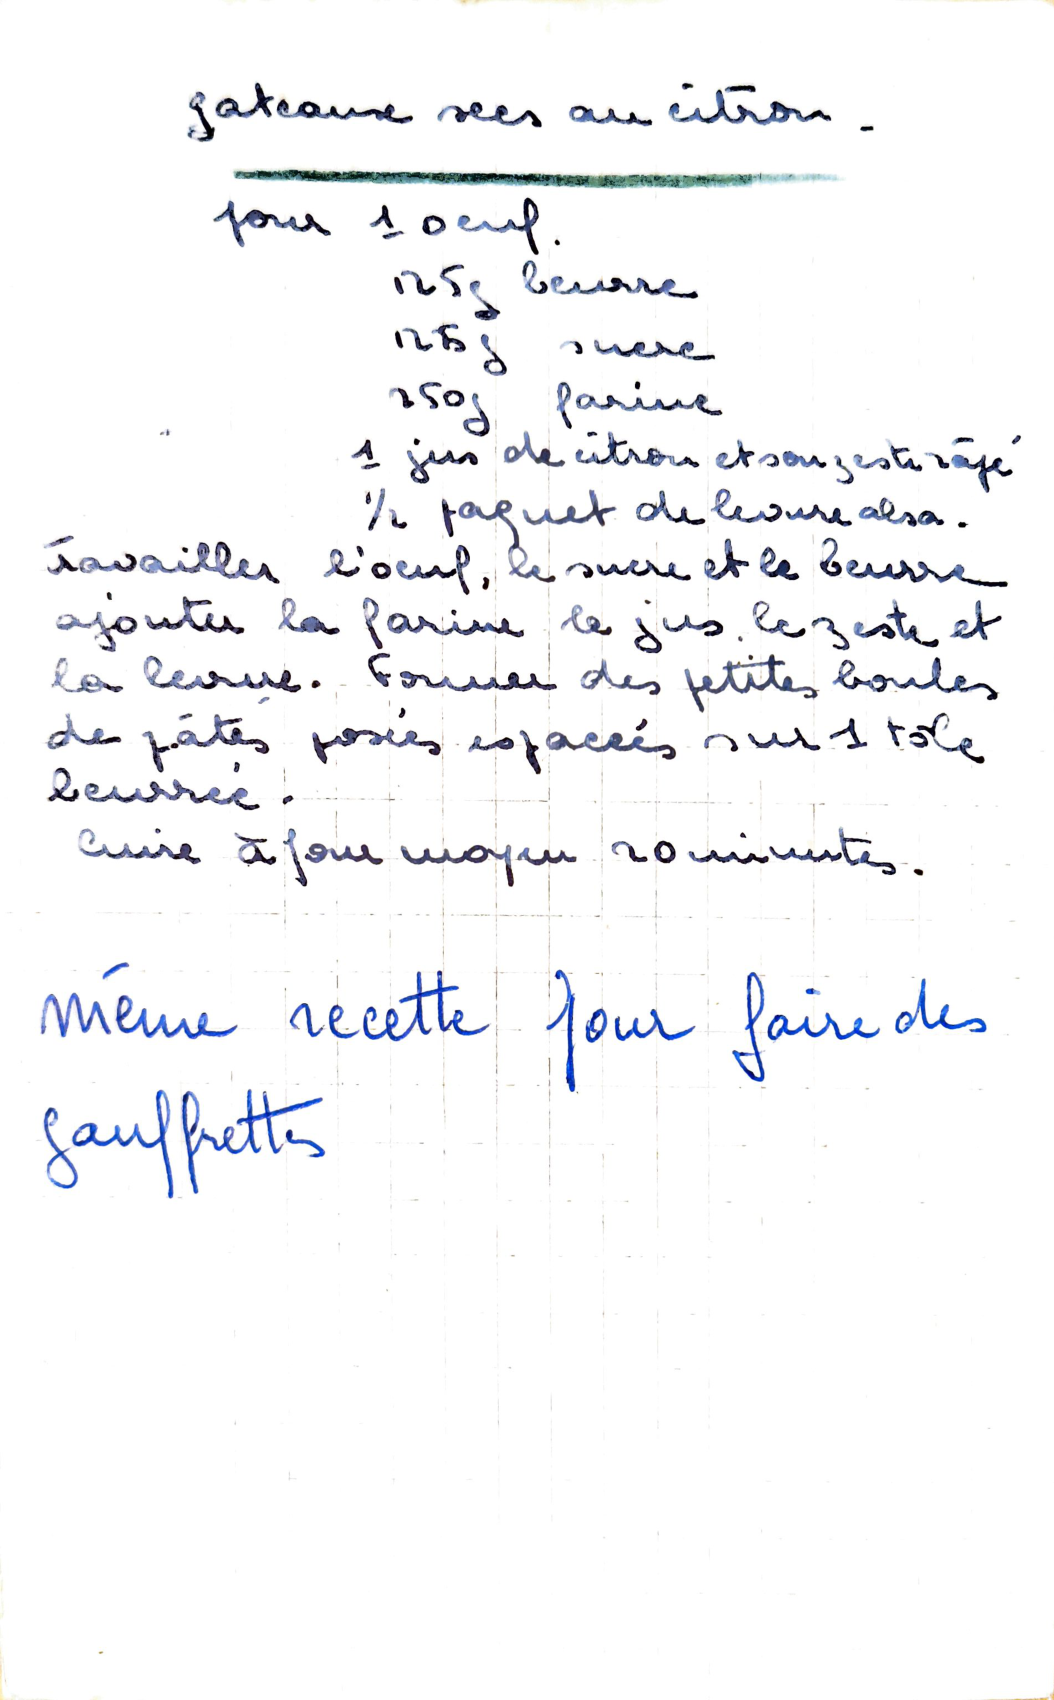 gateaux secs au citron -
pour 1 oeuf.
125g beurre
125g sucre
250g farine
1 jus de citron et son zeste râpé
1/2 paquet de levure alsa.
Travailler l'oeuf, le sucre et le beurre
ajouter la farine le jus. le zeste et
la levure. Former des petites boules
de pâtés posés espaccés sur 1 tôle
beurrée.
Cuire à four moyen 20 minutes.
Même recette pour faire des
gauffrettes